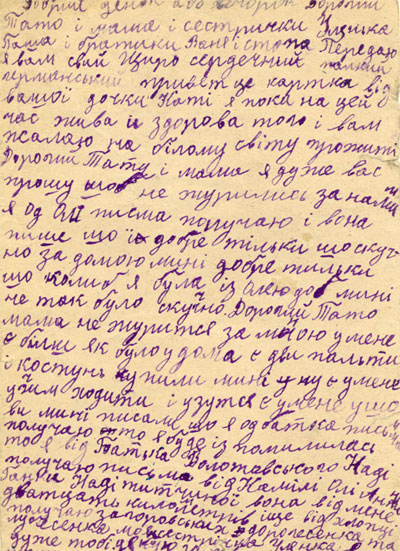 Добрий день або вечор Дорогий
Тато і мама і сестрички
Гаша і братики Ваня і стопа Передаю
я вам свій Щиро сердечний палкий
германський привєт це картка від
вашої дочки Каті я пока на цей
час жива и здорова того і вам
жалаю на білому світу прожиті
Дорогий Тату і мама я дуже вас
прошу шоб не журились за нами
я од Олі писма получаю і вона
пише що їй добре тільки що скуч
но за домою мині добре тильки
що колиб я була із Олею доб мині
не так було скучно Дорогий Тато
мама не журится за мною у мене
є більш як було удома є два пальти
і костунь купили мині ну є у мене
у чим ходити і узутся є у мене у шо
ви мині писали, що я од батька письмо
получаю то я буде із помилилась
то я від Батька Волотавського Наді
получаю письма від Намілі Олі
Гані і Наді титчиної вона від мене
двадцать километрів іще від хлопців
получаю Загоровських з Дорогсенка та